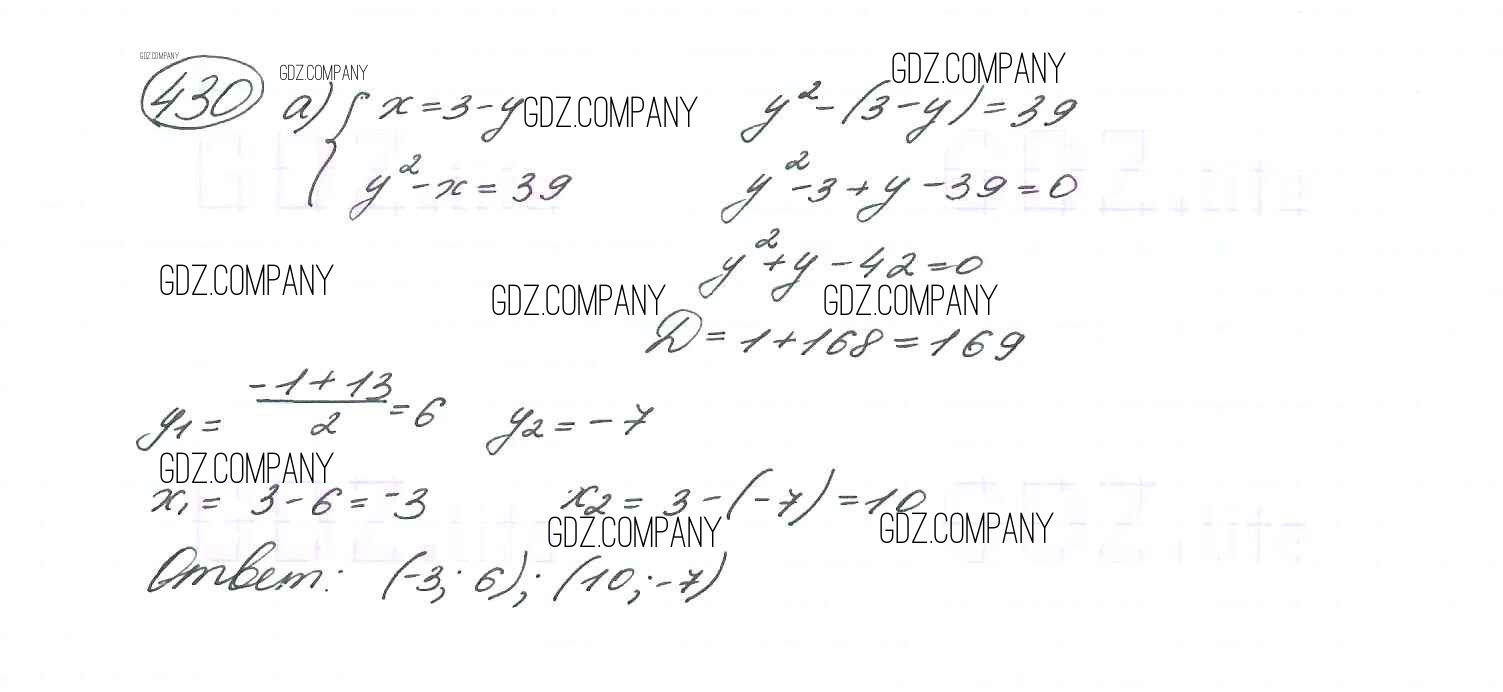 GDZ.COMPANY
430 а) { x = 3 - y GDZ.COMPANY
GDZ.COMPANY
y² - x = 39
GDZ.COMPANY
y² - (3 - y) = 39
y² - 3 + y - 39 = 0
y² + y - 42 = 0
GDZ.COMPANY GDZ.COMPANY GDZ.COMPANY
D = 1 + 168 = 169
y₁ = (-1 + 13)/2 = 6 y₂ = -7
GDZ.COMPANY
x₁ = 3 - 6 = -3 x₂ = 3 - (-7) = 10
GDZ.COMPANY GDZ.COMPANY
Ответ: (-3; 6); (10; -7)